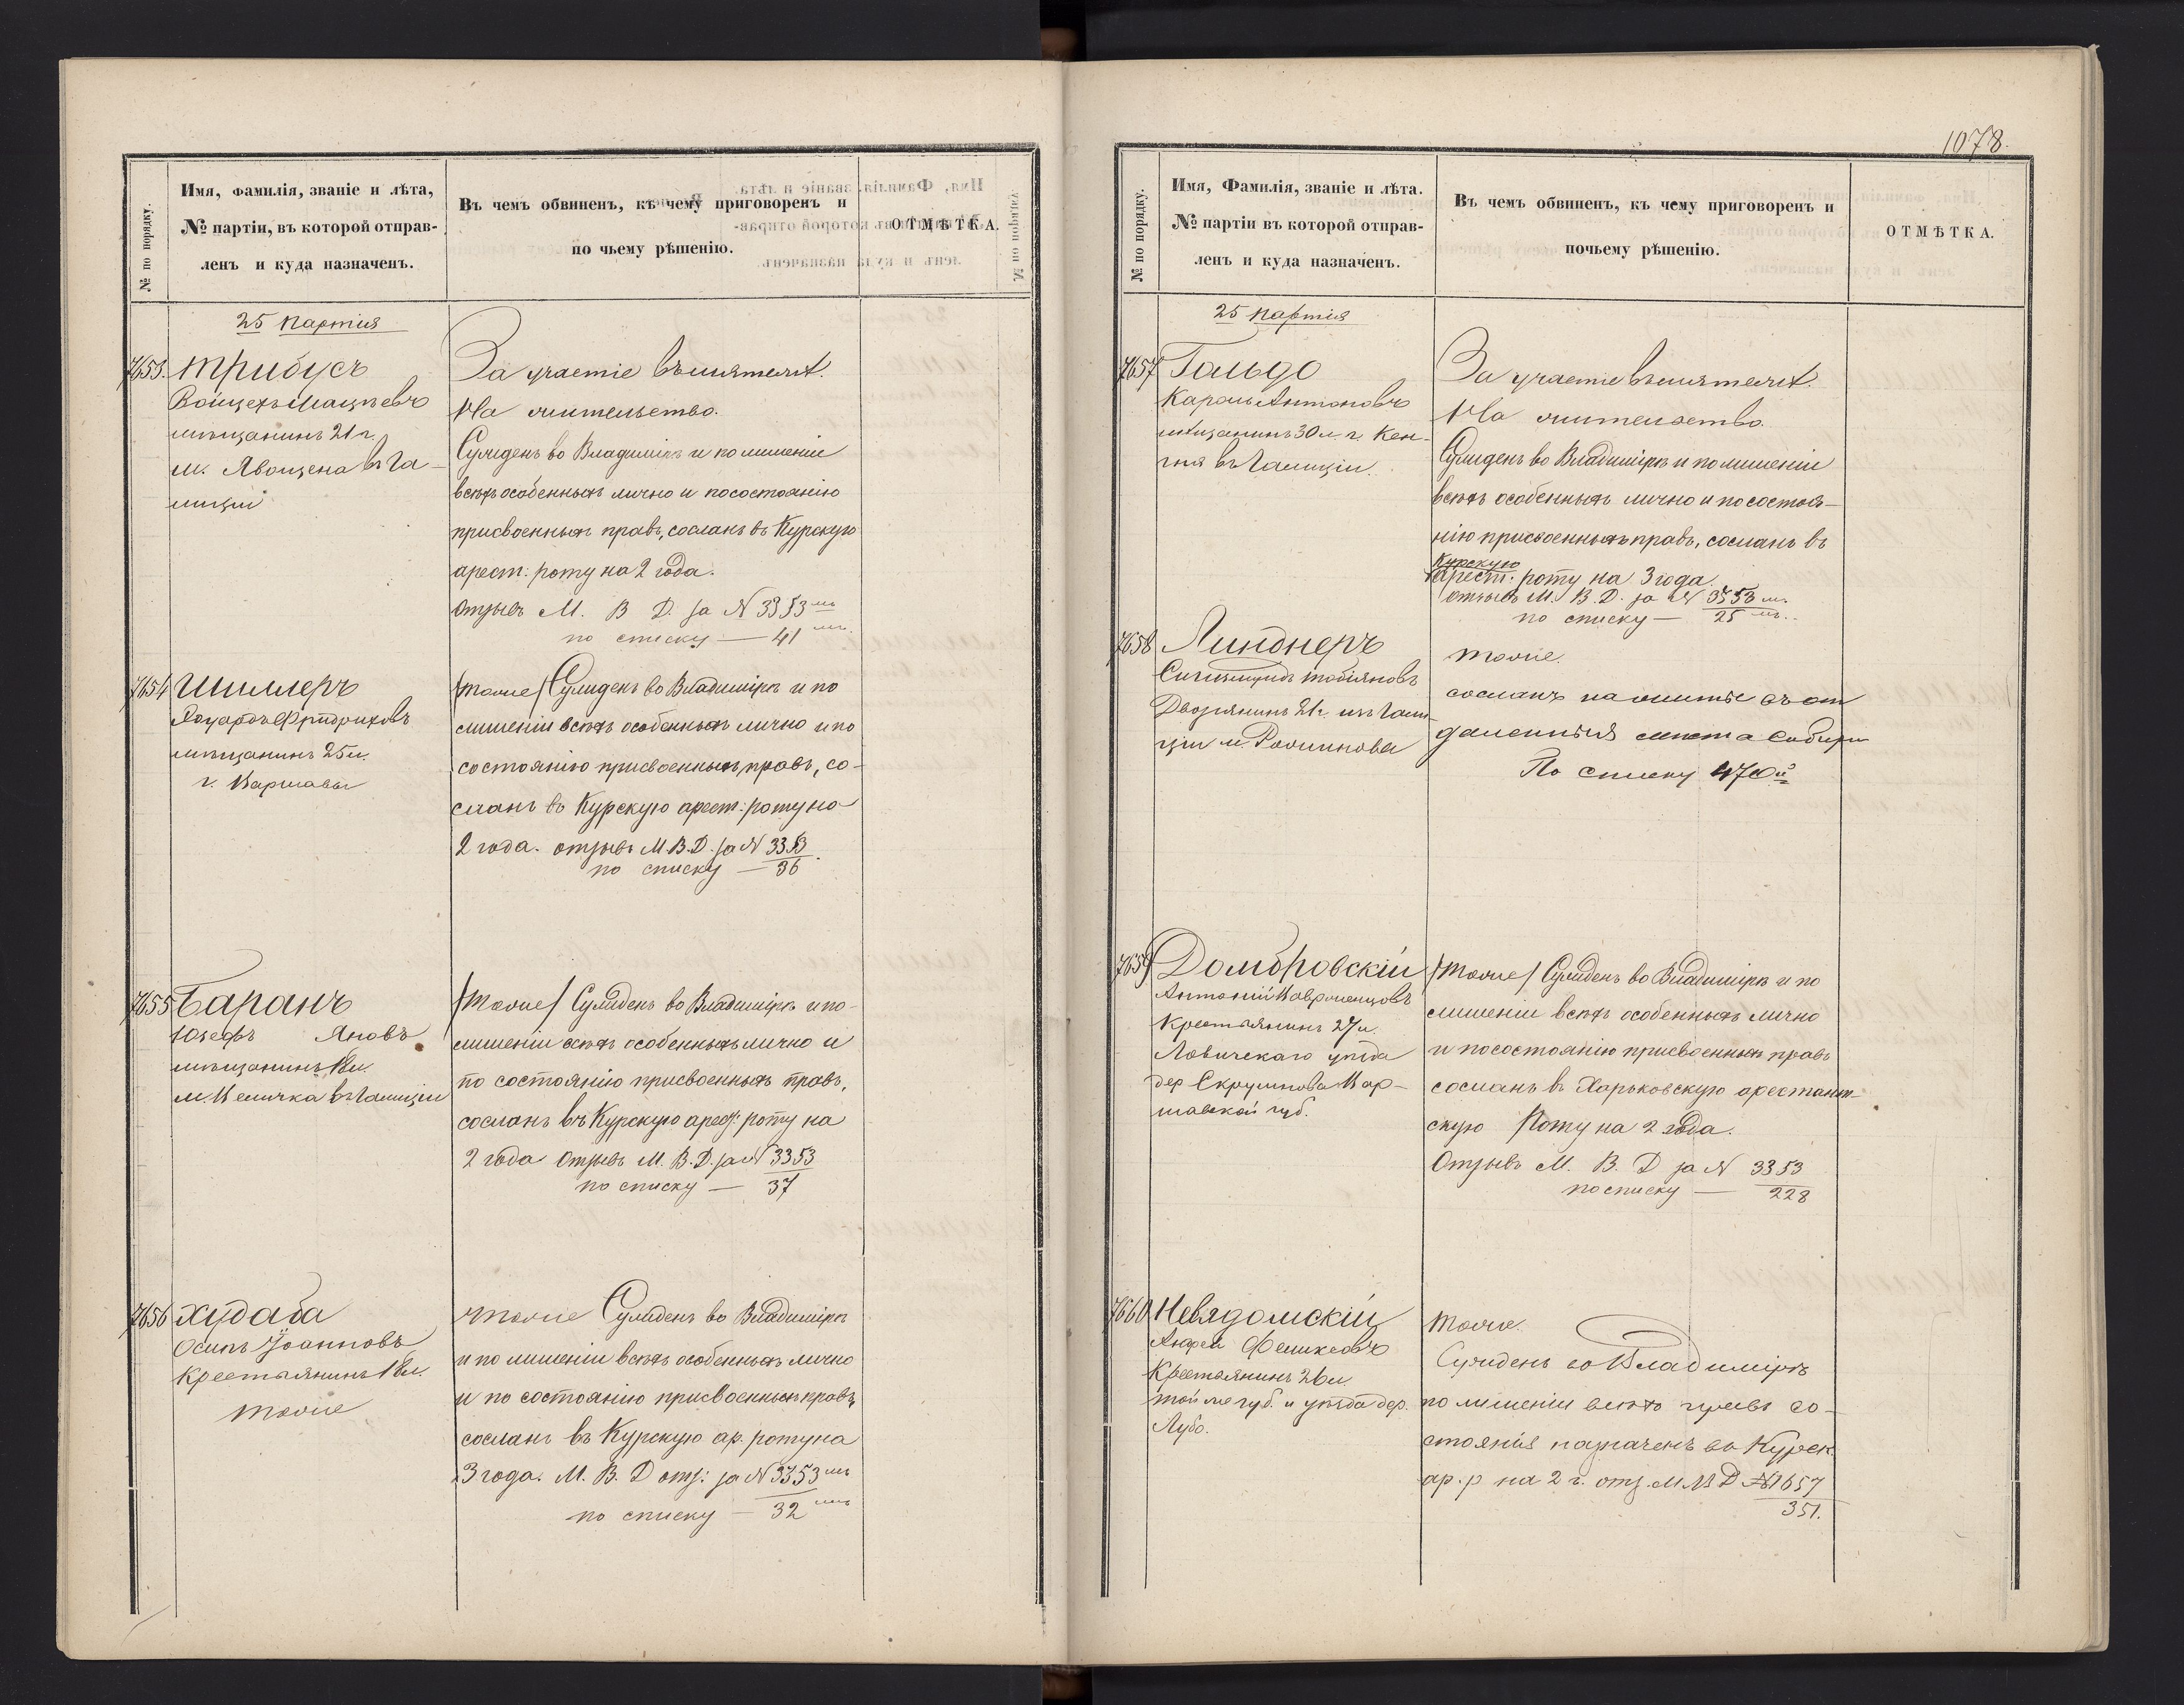 № по порядку.
Имя, фамилія, званіе и лѣта,
№ партіи, въ которой отправ-
ленъ и куда назначенъ.
Въ чемъ обвиненъ, къ чему приговоренъ и
по чьему рѣшенію.
ОТМѢТКА.
25 партия
7653. Трибусъ
Войцехъ Мацѣевъ
мѣщанинъ 21 г.
м. Явощена въ Га-
лиціи
За участіе въ мятежѣ.
На жительство.
Сужденъ во Владимірѣ и по лишеніи
всѣхъ особенныхъ лично и по состоянію
присвоенныхъ правъ, сосланъ въ Курскую
арест: роту на 2 года.
Отзывъ М. В. Д. за N 3353мъ
по списку — 41мъ
7654 Шиллеръ
Эдуардъ Фридриховъ
мѣщанинъ 25 л.
г. Варшавы
/тоже/ Сужденъ во Владимірѣ и по
лишеніи всѣхъ особенныхъ лично и по
состоянію присвоенныхъ правъ, со-
сланъ во Курскую арест: роту на
2 года. отзывъ М.В.Д. за N 3353
по списку — 36
7655 Баранъ
Юзефъ Яновъ
мѣщанинъ 18 л.
м. Величка въ Галиціи
/тоже/ Сужденъ во Владимірѣ и по
лишеніи всѣхъ особенныхъ лично и
по состоянію присвоенныхъ правъ,
сосланъ въ Курскую арес: роту на
2 года Отзывъ М. В. Д. за N 3353
по списку — 37
7656 Худаба
Осипъ Іоанновъ
Крестьянинъ 18 л.
тоже
тоже Сужденъ во Владимірѣ
и по лишеніи всѣхъ особенныхъ лично
и по состоянію присвоенныхъ правъ,
сосланъ въ Курскую ар. роту на
3 года. М. В. Д отз: за N 3353мъ
по списку — 32мъ
1078.
№ по порядку.
Имя, Фамилія, званіе и лѣта.
№ партіи въ которой отправ-
ленъ и куда назначенъ.
Въ чемъ обвиненъ, къ чему приговоренъ и
почьему рѣшенію.
ОТМѢТКА.
25 партія
7657 Гальдо
Кароль Антоновъ
мѣщанинъ 30 л. г. Кен-
ты въ Галиціи.
За участіе въ мятежѣ.
На жительство.
Сужденъ во Владимірѣ и по лишеніи
всѣхъ особенныхъ лично и по состоя-
нію присвоенныхъ правъ, сосланъ въ
Курскую
арест: роту на 3 года.
отзывъ М. В. Д. за N 3353 м.
по списку — 25мъ.
7658 Линднеръ
Сигизмундъ Тобіяновъ
Дворянинъ 21 г. изъ Гали-
ціи м. Рожнова
тоже.
сосланъ на житье въ от
даленныя мѣста Сибири
По списку 470й
7659 Домбровскій
Антоній Вавр
Крестьянинъ 27 л.
Ловичскаго уѣзда
дер Скрумнова Вар-
шавской губ.
/тоже/ Сужденъ во Владимірѣ и по
лишеніи всѣхъ особенныхъ лично
и по состоянію присвоенныхъ правъ
сосланъ въ Харьковскую арестант-
скую роту на 2 года.
Отзывъ М. В. Д за N 3353
по списку — 228
7660 Невядомскій
Андрей Феликсовъ
Крестьянинъ 26 л.
той же губ. и уѣзда дер.
Лубо.
тоже.
Сужденъ во Владимірѣ
по лишеніи всѣхъ правъ со-
стоянія назначенъ въ Курск.
ар. р на 2 г. отз. М В Д № 1657
351.